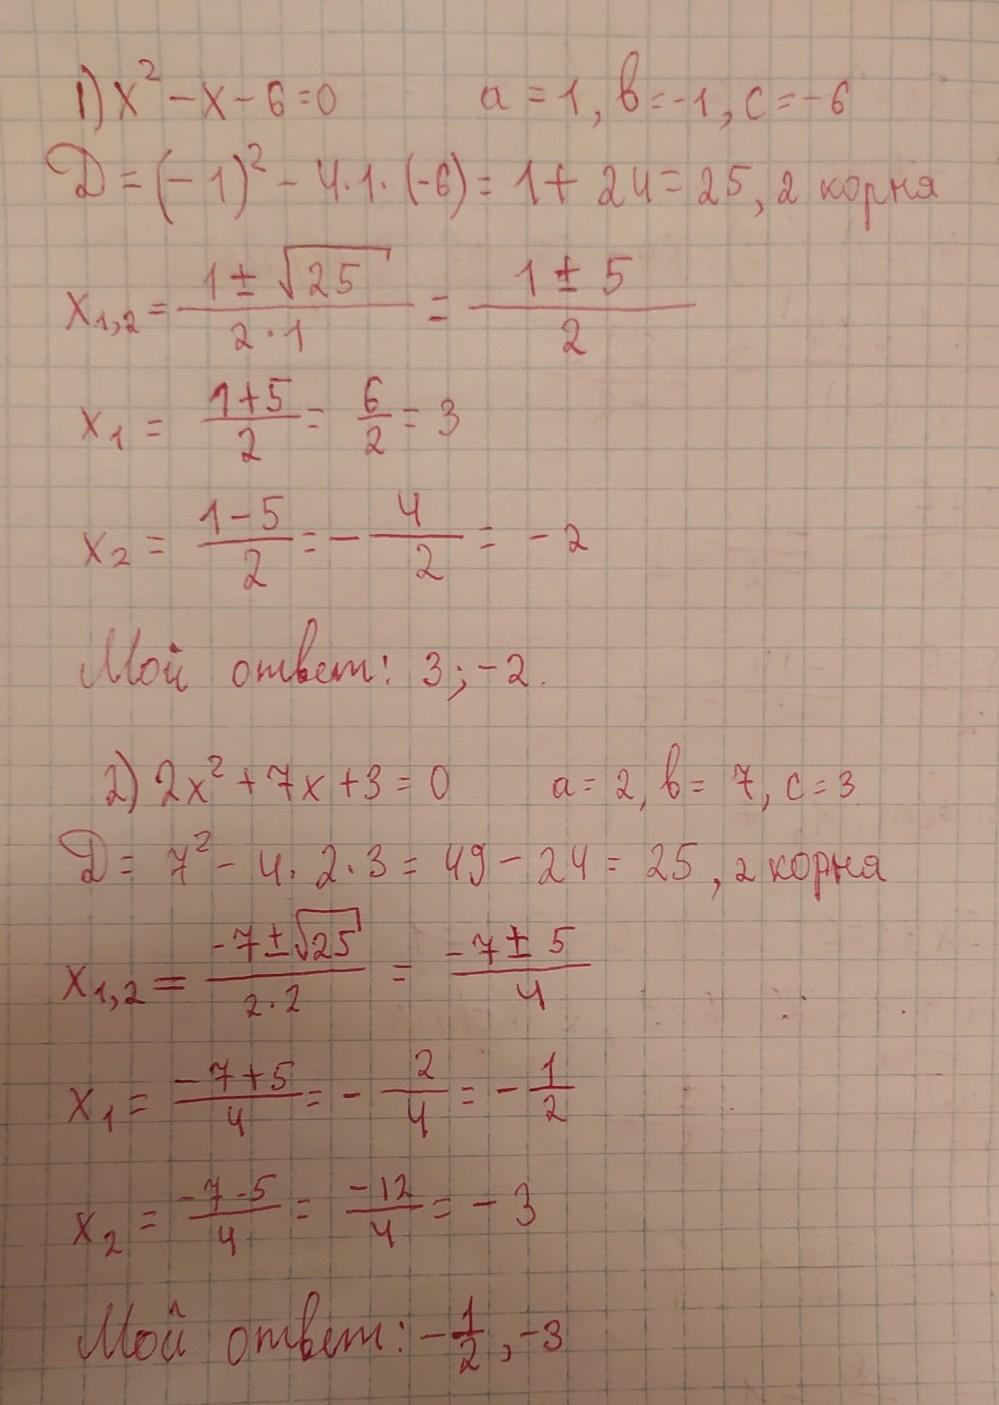 1) x² - x - 6 = 0 a = 1, b = -1, c = -6
D = (-1)² - 4·1·(-6) = 1 + 24 = 25, 2 корня
x₁,₂ = (1 ± √25)/(2·1) = (1 ± 5)/2
x₁ = (1+5)/2 = 6/2 = 3
x₂ = (1-5)/2 = -4/2 = -2
Мой ответ: 3; -2.
2) 2x² + 7x + 3 = 0 a = 2, b = 7, c = 3
D = 7² - 4·2·3 = 49 - 24 = 25, 2 корня
x₁,₂ = (-7 ± √25)/(2·2) = (-7 ± 5)/4
x₁ = (-7+5)/4 = -2/4 = -1/2
x₂ = (-7-5)/4 = -12/4 = -3
Мой ответ: -1/2, -3